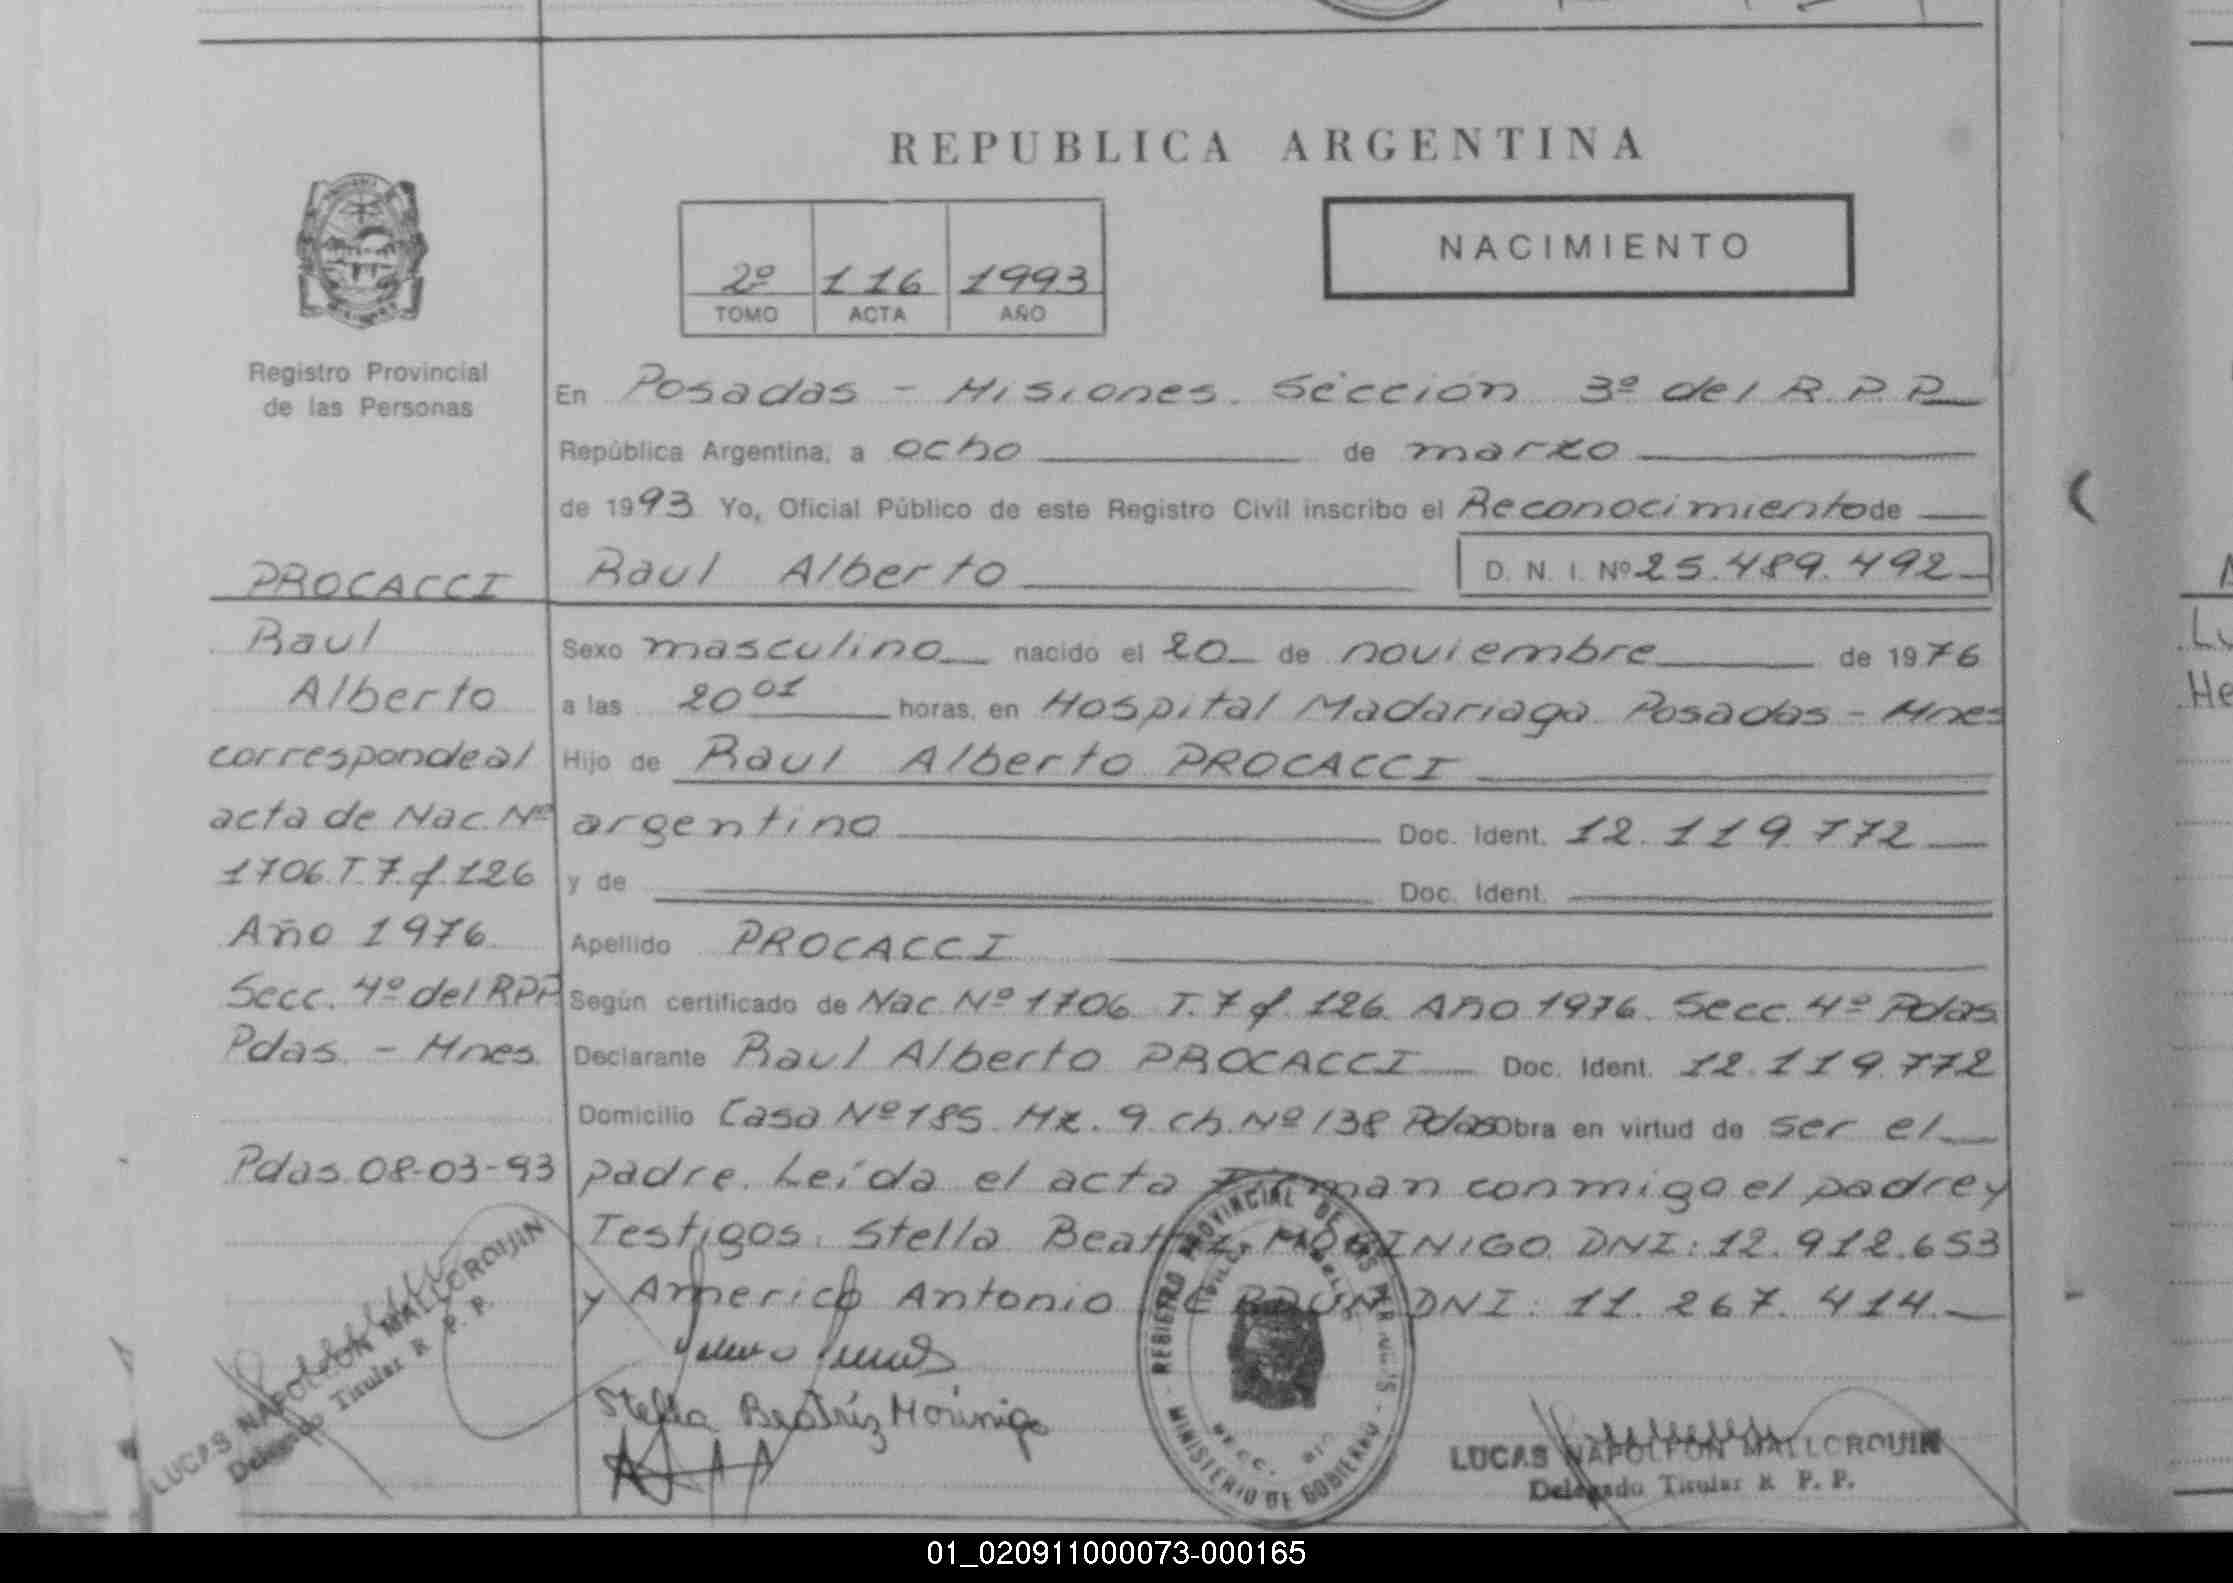 REPUBLICA ARGENTINA
NACIMIENTO
2º 116 1993
TOMO ACTA AÑO
Registro Provincial
de las Personas
En Posadas - Misiones. Sección 3º del R.P.P.
República Argentina, a ocho de marzo
de 1993 Yo, Oficial Público de este Registro Civil inscribo el Reconocimiento de
Raul Alberto D. N. I. Nº 25.489.492
PROCACCI
Raul
Alberto
corresponde al
acta de Nac. Nº
1706. T. 7. f. 126
Año 1976.
Secc. 4º del RPP
Pdas. - Mnes.
Pdas. 08-03-93
LUCAS NAPOLEON MALLORQUIN
Delegado Titular R. P. P.
Sexo masculino nacido el 20 de noviembre de 1976
a las 20 01 horas, en Hospital Madariaga Posadas - Mnes
Hijo de Raul Alberto PROCACCI
argentino Doc. Ident. 12.119.772
y de Doc. Ident.
Apellido PROCACCI
Según certificado de Nac. Nº 1706. T. 7 f. 126. Año 1976. Secc. 4º Pdas.
Declarante Raul Alberto PROCACCI Doc. Ident. 12.119.772
Domicilio Casa Nº 185. Mz. 9. Ch. Nº 138 Pdas Obra en virtud de ser el
padre. Leída el acta firman conmigo el padre y
Testigos. Stella Beatriz MORINIGO. DNI: 12.912.653
y Americo Antonio DNI: 11.267.414.
Stella Beatríz Morinigo
REGISTRO PROVINCIAL DE LAS PERSONAS
MINISTERIO DE GOBIERNO
LUCAS NAPOLEON MALLORQUIN
Delegado Titular R. P. P.
Lu
He
01_020911000073-000165